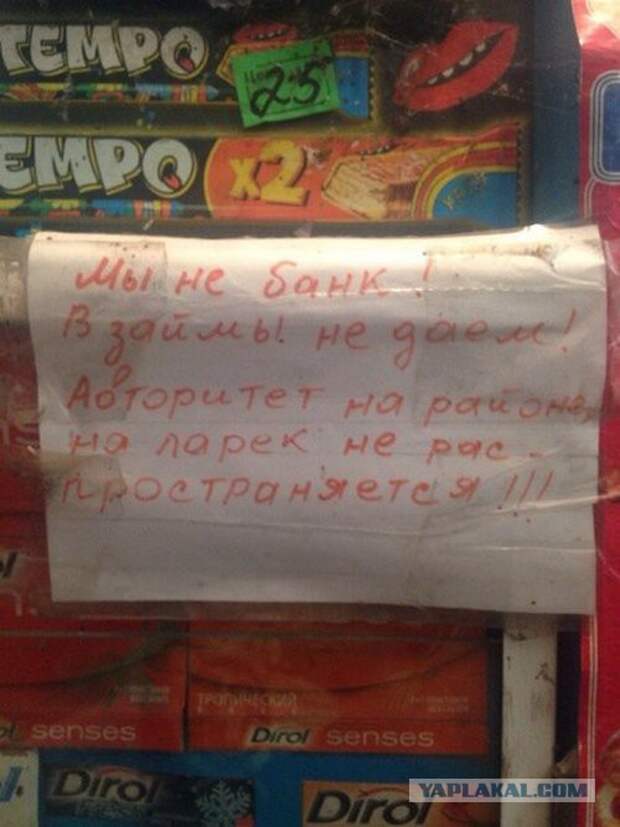 TEMPO
25
EMPO
x2
Мы не банк!
В займы не даем!
Авторитет на районе,
на ларек не рас-
пространяется!!!
ТРОПИЧЕСКИЙ
senses
Dirol senses
Dirol
Dirol
YAPLAKAL.COM